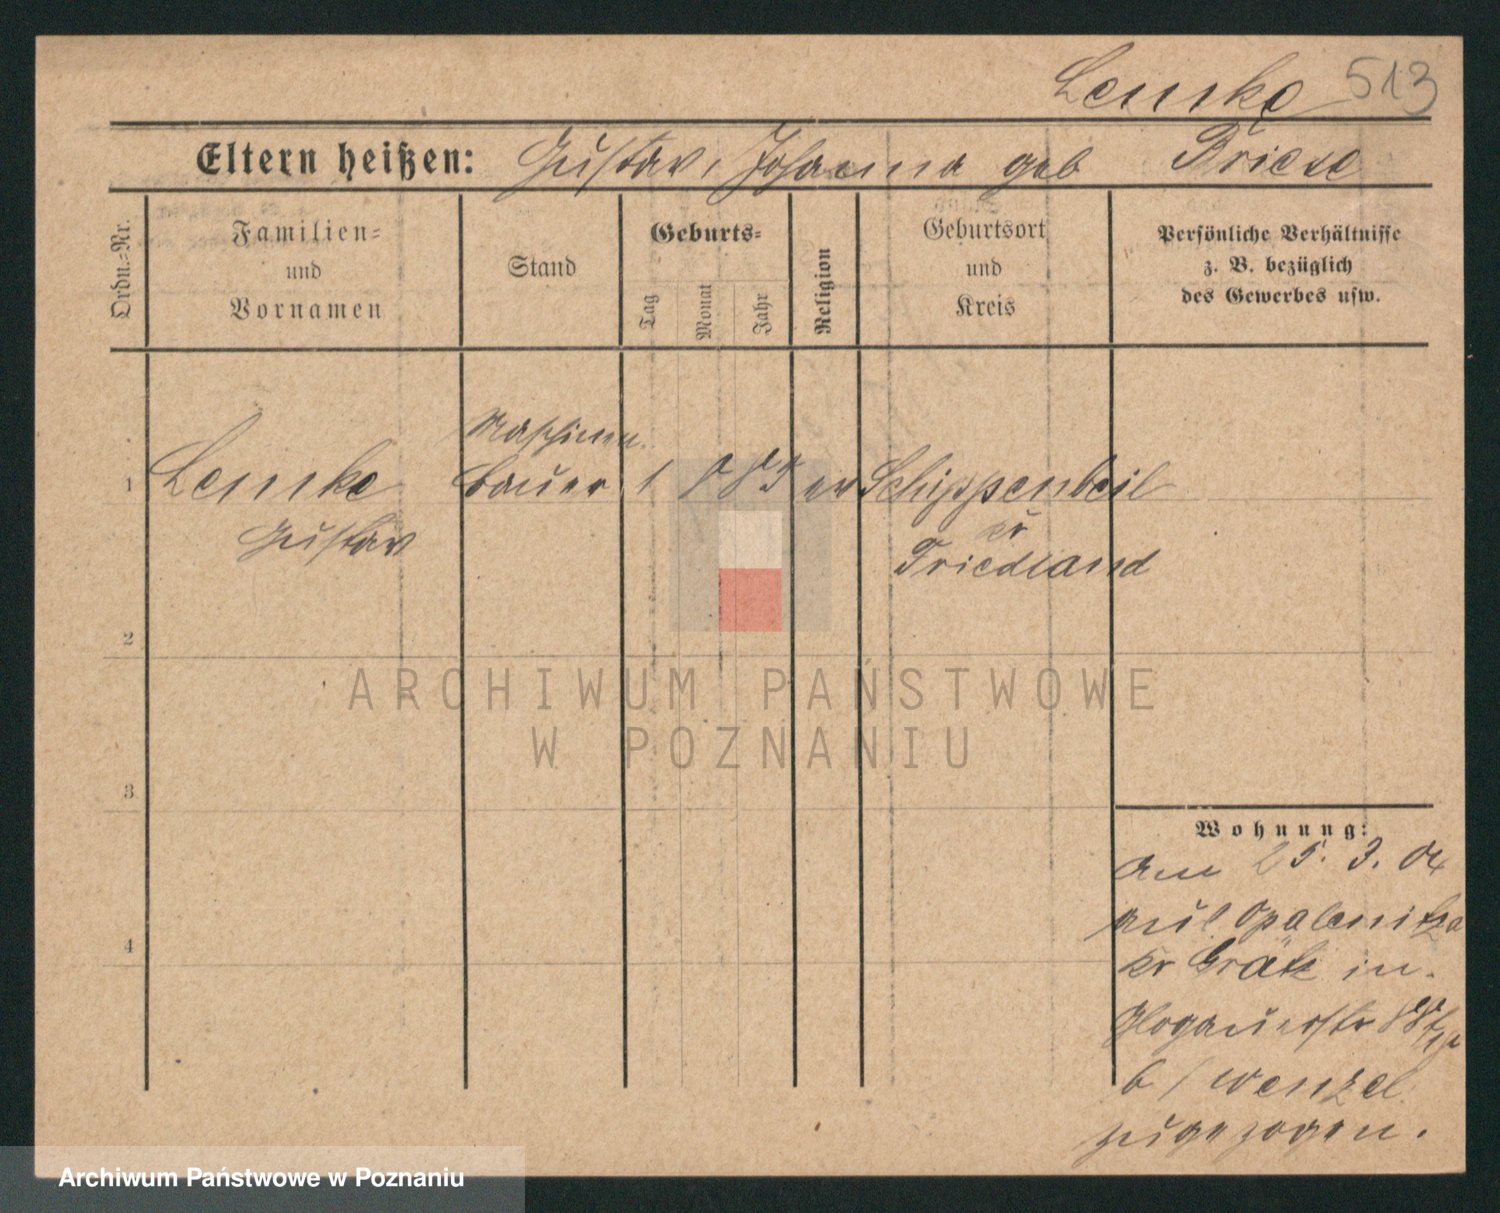 Lemke 513
Eltern heißen: Gustav, Johanna geb Briese
Ordn.-Nr.
Familien-
und
Vornamen
Stand
Geburts-
Tag
Monat
Jahr
Religion
Geburtsort
und
Kreis
Persönliche Verhältnisse
z. B. bezüglich
des Gewerbes usw.
Maschinen
1 Lemke bauer 1 8 83 ev Schippenbeil
Gustav kr
Friedland
2
3
4
ARCHIWUM PAŃSTWOWE
W POZNANIU
Wohnung:
am 25. 3. 04
aus Opalenitza
kr Grätz in
Glogauerstr 88
b/ Wenzel
zugezogen.
Archiwum Państwowe w Poznaniu